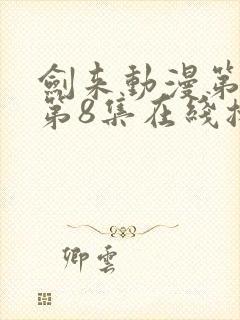 劍来動漫第
第8集在綫播
卿雲